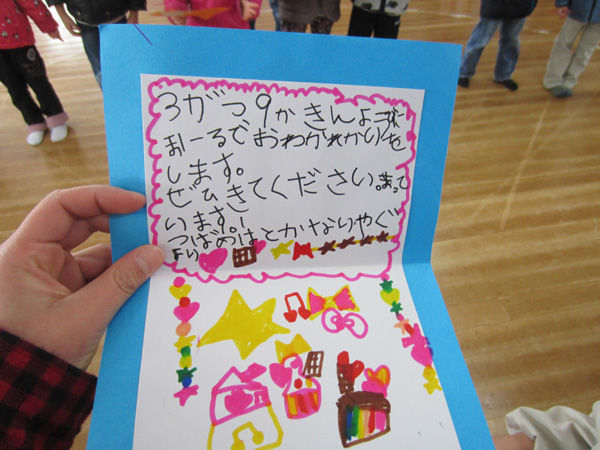 3がつ9か
ほーるで おわかれかいを
します。
ぜひきてください。まって
います。!
つばめはとかなりやぐ
より